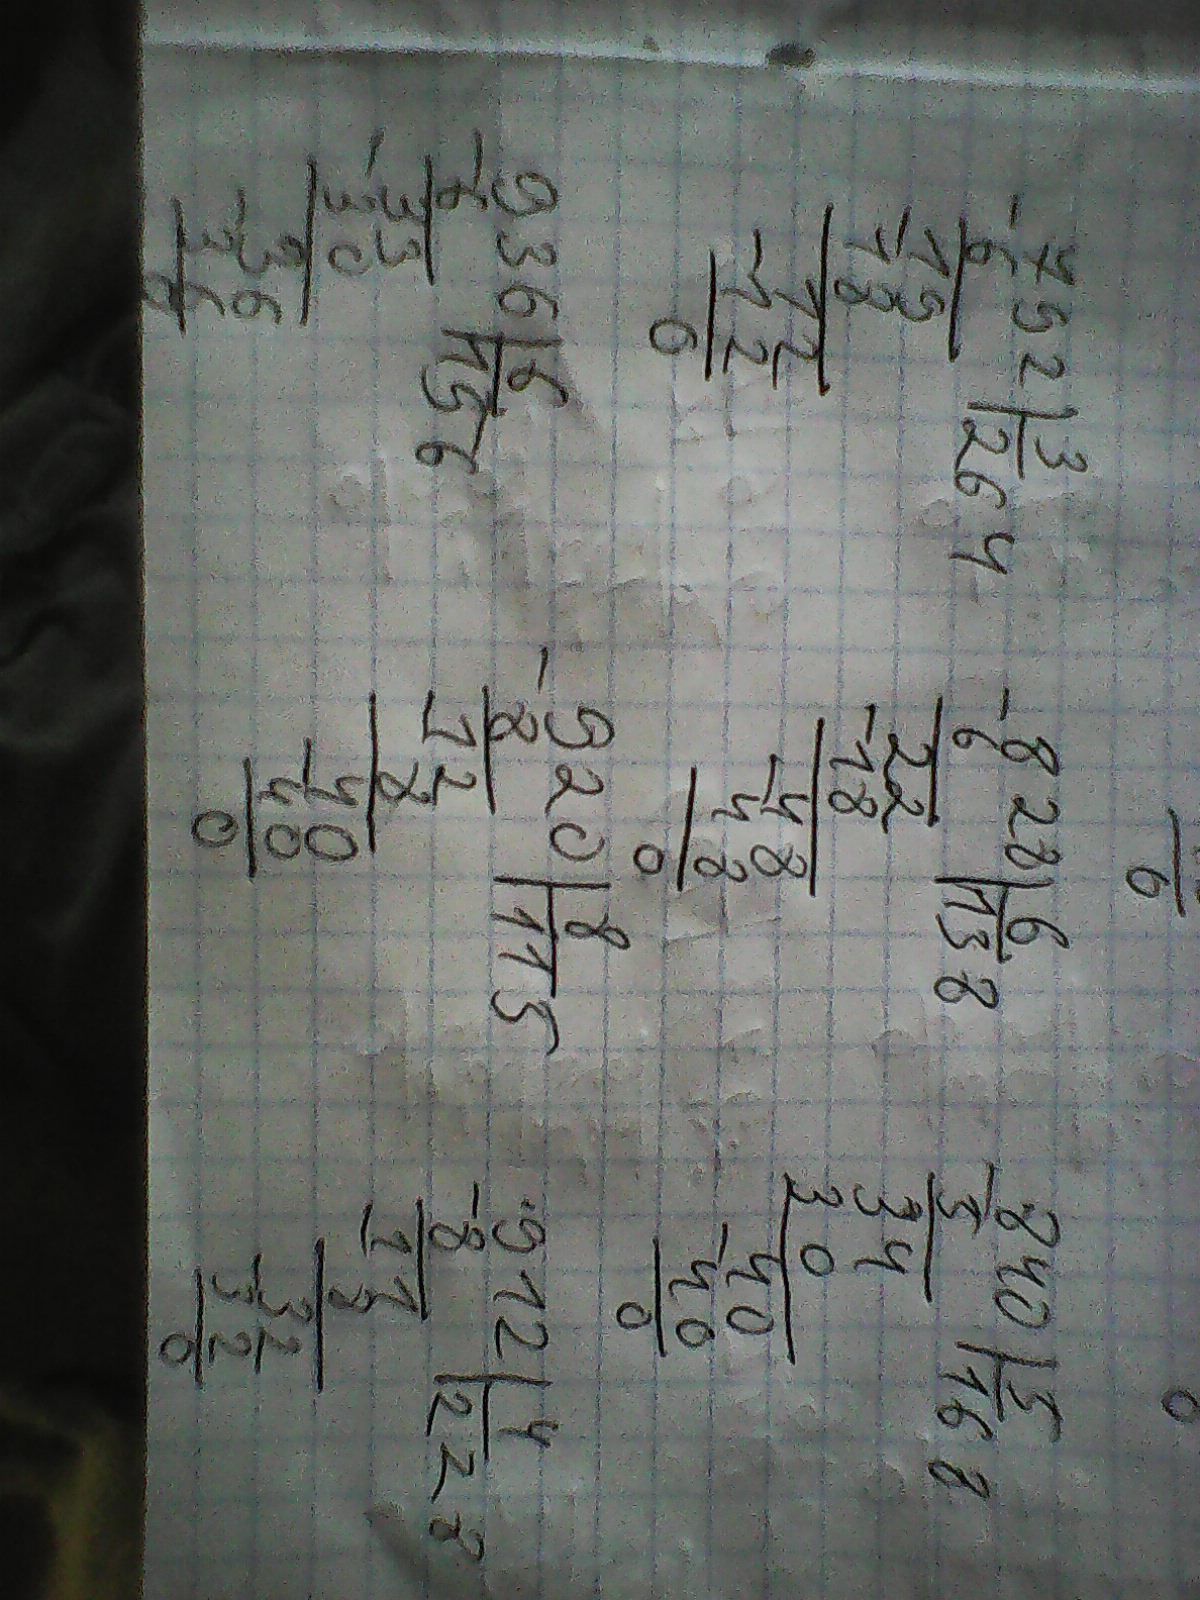 0 0
-792|3 -828|6 -840|5
6 264 6 138 5 168
-19 22 34
18 -18 30
-12 -48 -40
12 48 40
0 0 0
-936|6 -920|8 -912|4
6 156 8 115 8 228
-33 12 -11
30 8 8
-36 -40 -32
36 40 32
0 0 0